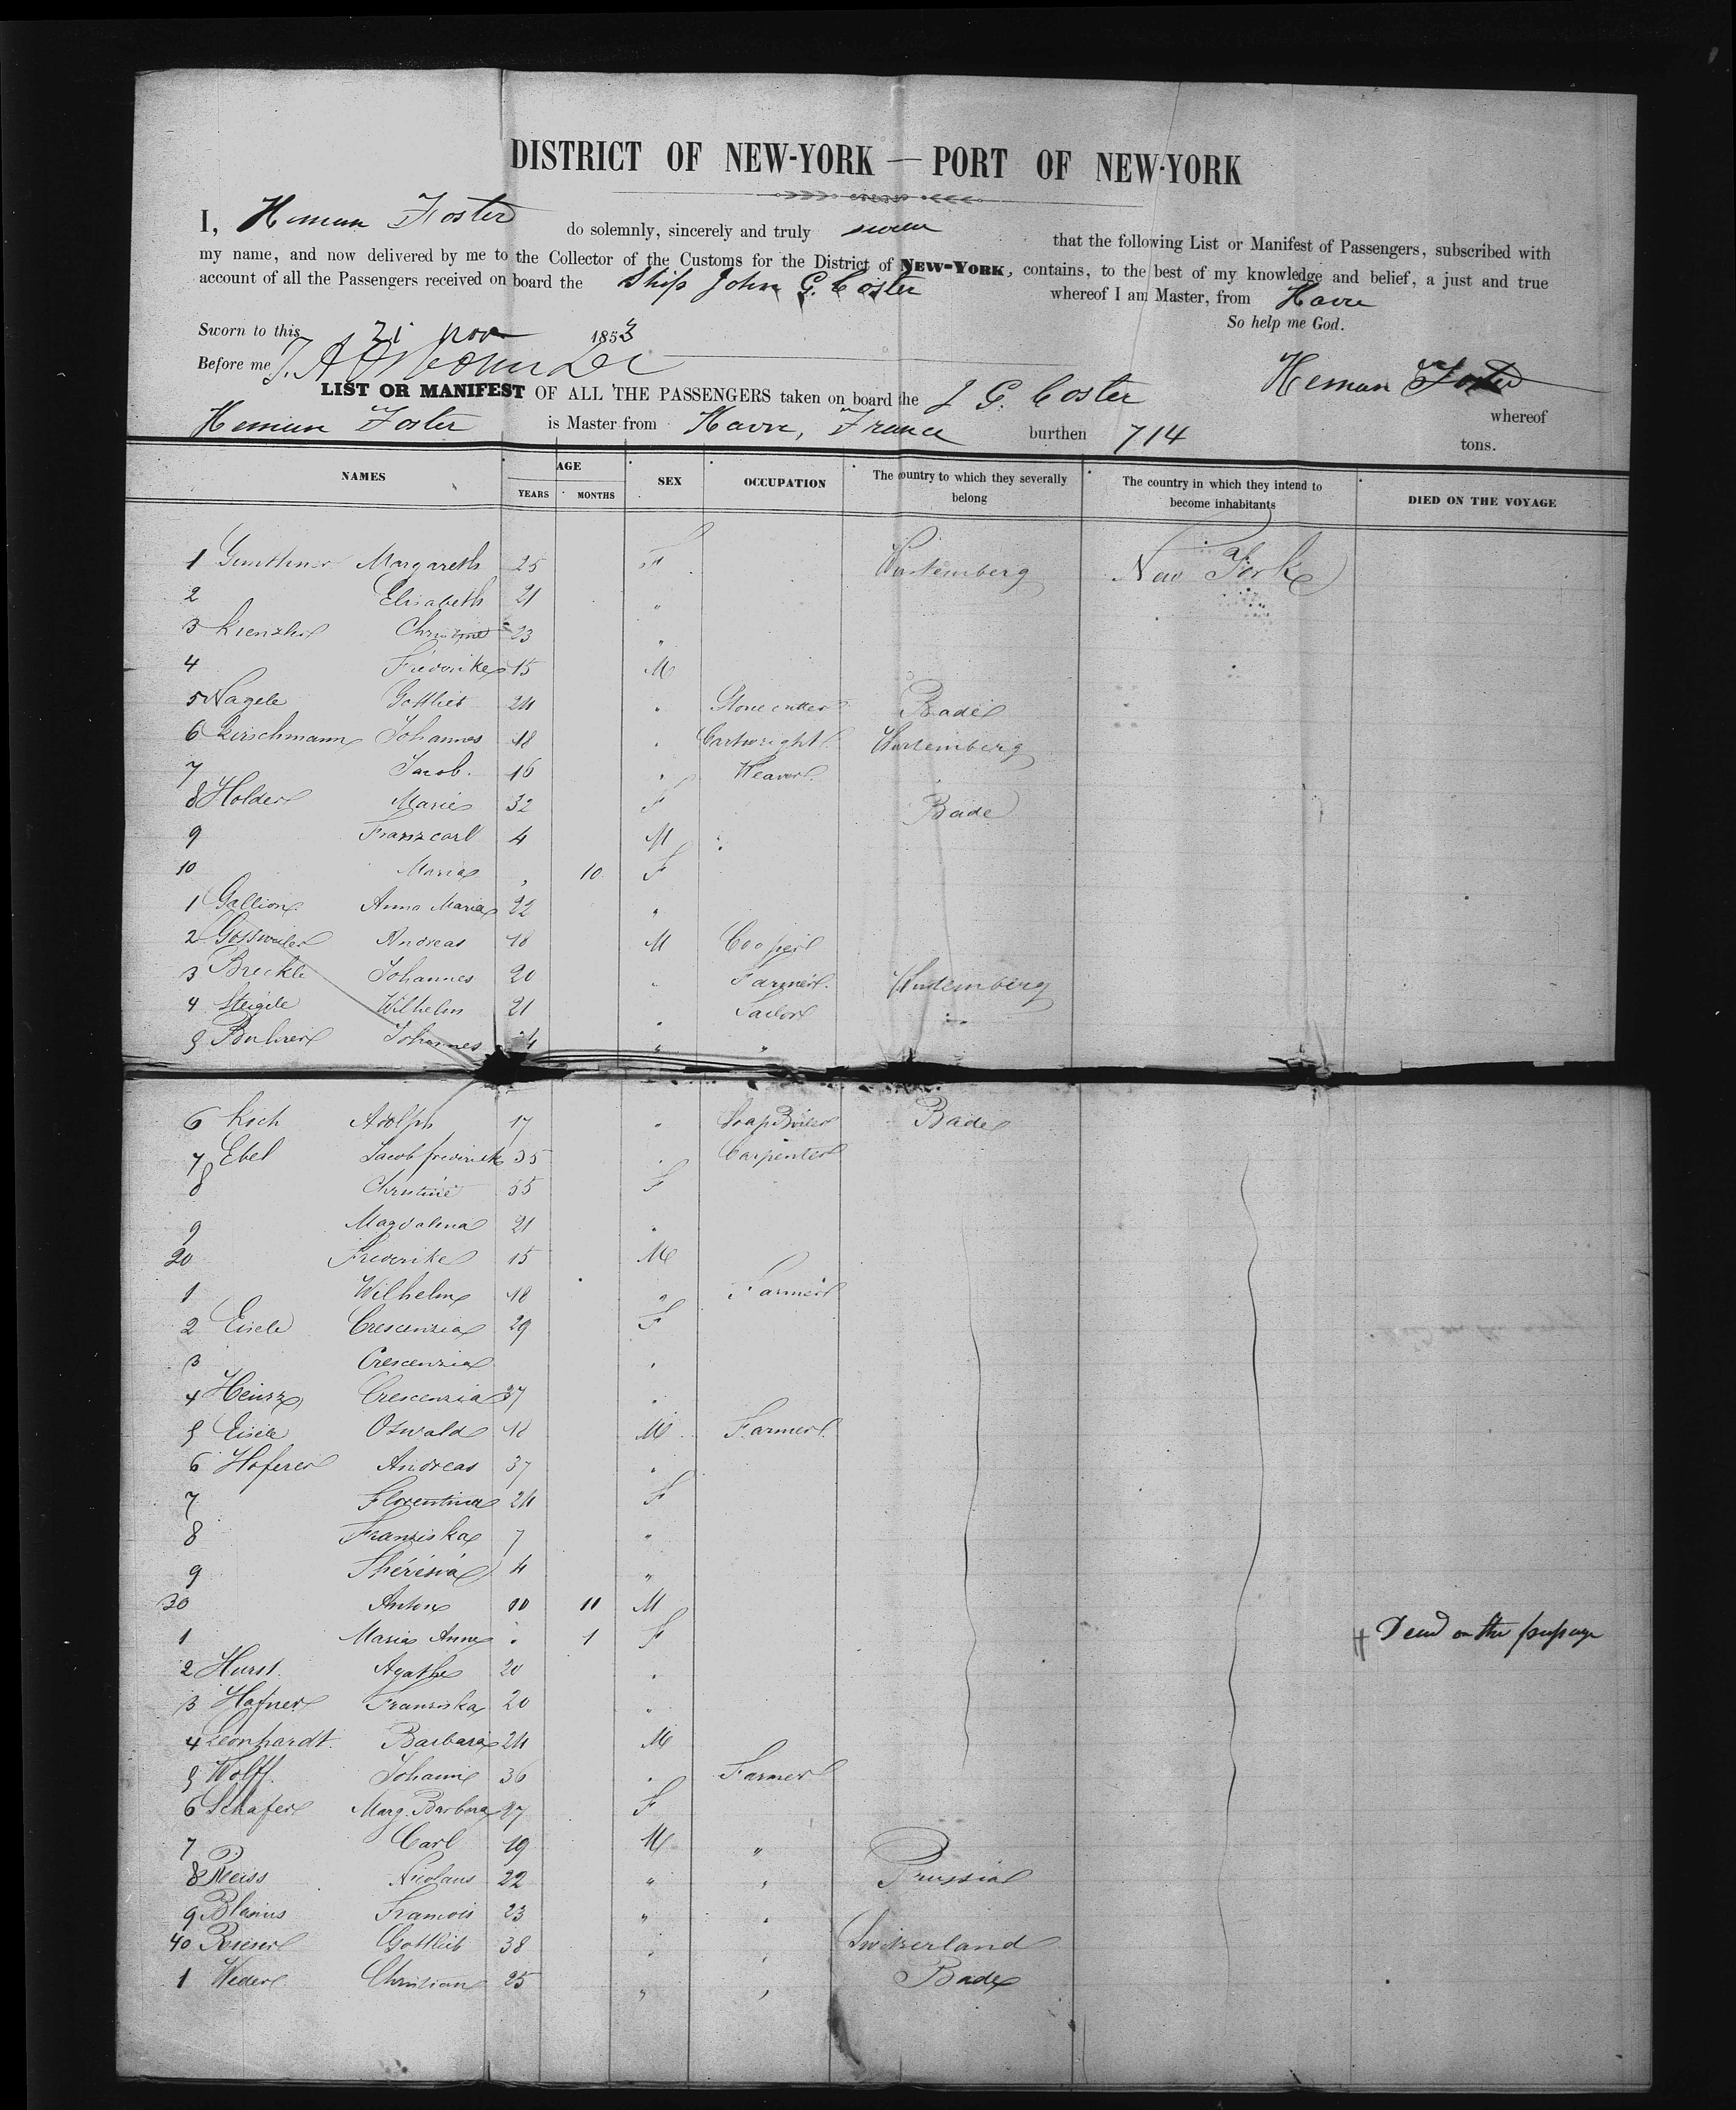 DISTRICT OF NEW-YORK — PORT OF NEW-YORK
I, Heman Foster do solemnly, sincerely and truly swear that the following List or Manifest of Passengers, subscribed with
my name, and now delivered by me to the Collector of the Customs for the District of NEW-YORK, contains, to the best of my knowledge and belief, a just and true
account of all the Passengers received on board the Ship John G. Coster whereof I am Master, from Havre
So help me God.
Sworn to this 21 nov 1853
Before me
Heman Foster
LIST OR MANIFEST OF ALL THE PASSENGERS taken on board the J G. Coster whereof
Heman Foster is Master from Havre, France burthen 714 tons.
NAMES AGE YEARS MONTHS SEX OCCUPATION The country to which they severally belong The country in which they intend to become inhabitants DIED ON THE VOYAGE
1 Margareth 25 F Wurtemberg New York
2 Elisabeth 21 "
3 Christine 23 "
4 Frederike 15 M
5 Nagele Gottlieb 24 " Stonecutter Bade
6 Kirschmann Johannes 18 " Cartwright Wurtemberg
7 Jacob. 16 " Weaver
8 Holder Marie 32 F Bade
9 Franz carl 4 M
10 Maria " 10 F
1 Gallion Anna Maria 22 "
2 Gossweiler Andreas 18 M Cooper
3 Breckle Johannes 20 " Farmer. Wurtemberg
4 Steigele Wilhelm 21 " Tailor
5 Buhrer Johannes " "
6 Koch Adolph 17 " Soap Boiler Bade
7 Ebel Jacob frederick 35 " Carpenter
8 Christine 55 F
9 Magdalena 21 "
20 Frederike 15 M
1 Wilhelm 18 " Farmer
2 Eisele Crescenzia 29 F
3 Crescenzia "
4 Heinz Crescenzia 37 "
5 Eisele Oswald 18 M Farmer
6 Hoferer Andreas 37 "
7 Florentina 24 F
8 Franziska 7 "
9 Thérésia 4 "
30 Anton 00 11 M
1 Maria Anna " 1 F Dead on the passage
2 Hurst Agathe 20 "
3 Hafner Franziska 20 "
4 Leonhardt. Barbara 24 M
5 Wolff. Johann 36 " Farmer
6 Schafer Marg. Barbara 27 F
7 Carl 19 M "
8 Reiss Nicolaus 22 " " Prussia
9 Blasius Francois 23 " "
40 Rieser Gottlieb 38 " " Switzerland
1 Weder Christian 25 " " Bade